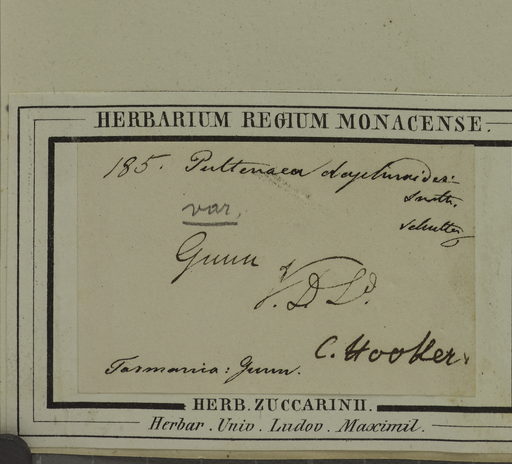 HERBARIUM REGIUM MONACENSE.
185. Pultenaea daphnoides:
Smth.
var.
Gunn
V.D.Ld.
C. Hooker
Tasmania: Gunn.
HERB. ZUCCARINII.
Herbar. Univ. Ludov. Maximil.